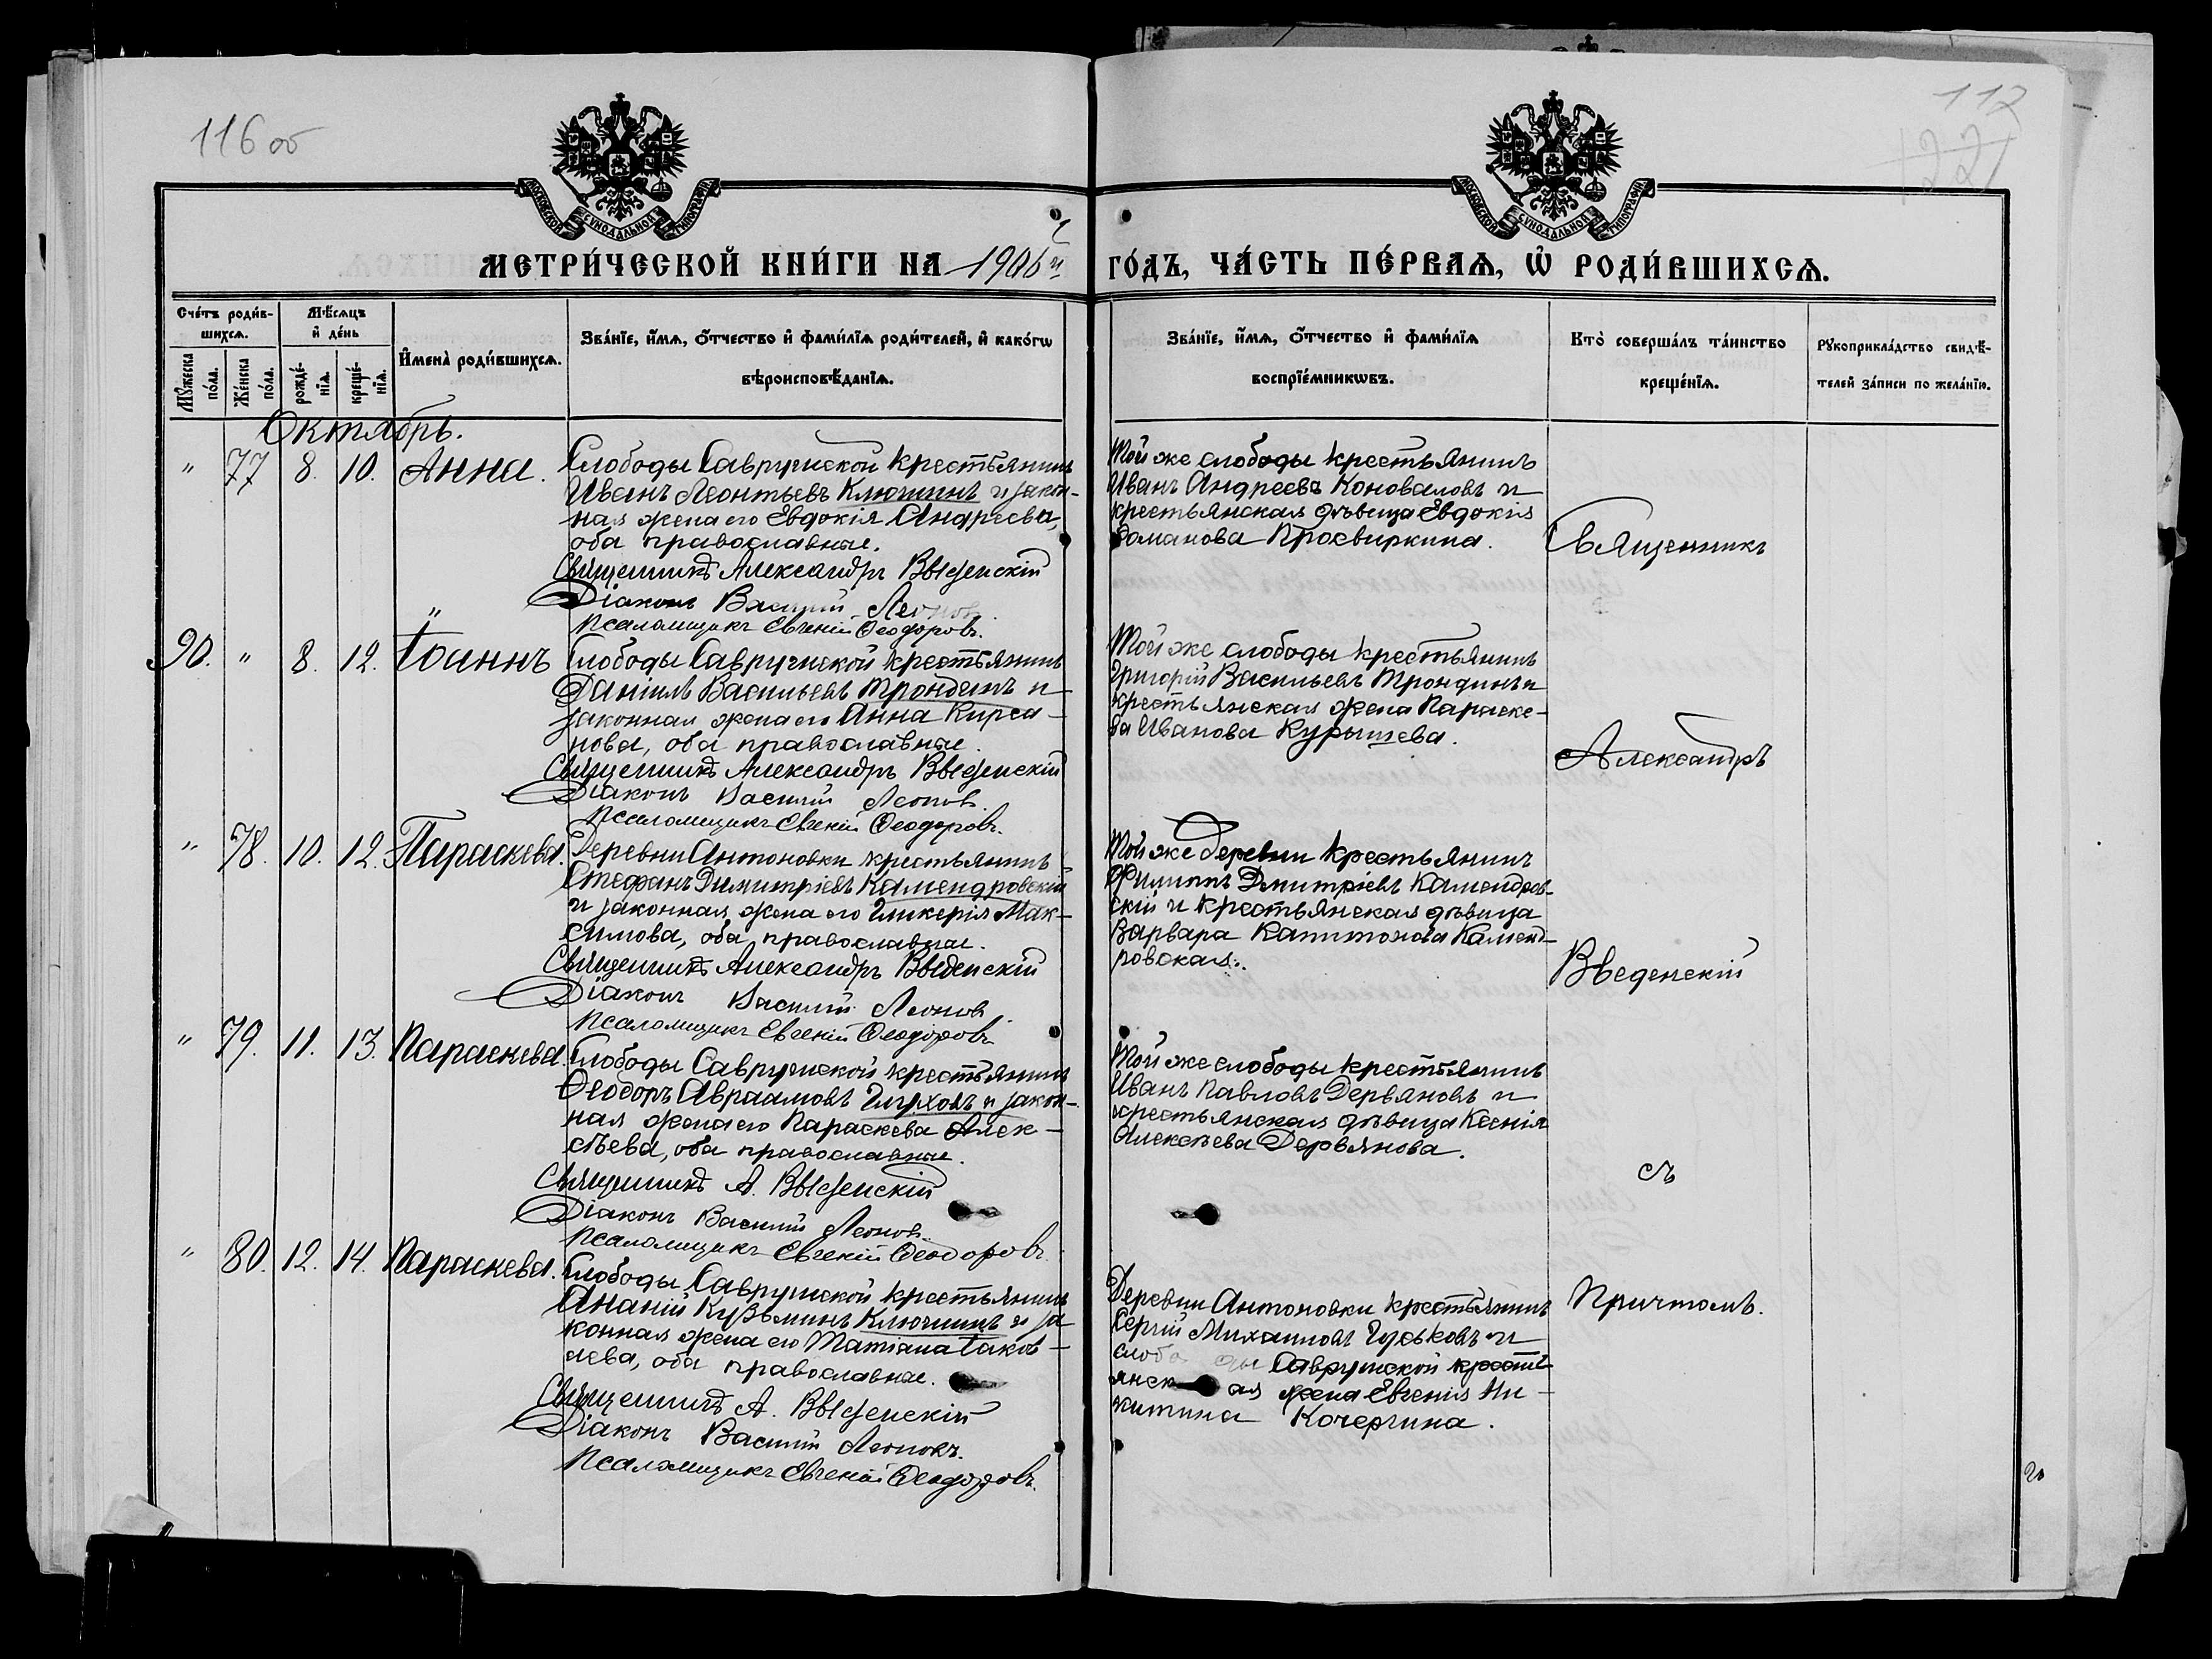 116 об
112
122
МОСКОВСКОЙ СѴНОДАЛЬНОЙ ТИПОГРАФІИ
МОСКОВСКОЙ СѴНОДАЛЬНОЙ ТИПОГРАФІИ
МЕТРИ́ЧЕСКОЙ КНИ́ГИ НА 1906й
ГО́ДЪ, ЧА́СТЬ ПЕ́РВАѦ, Ѡ҆ РОДИ́ВШИХСѦ.
Сче́тъ роди́в-
шихсѧ.
Мѣ́сѧцъ
и҆ де́нь
Мꙋ́жеска
по́ла.
Же́нска
по́ла.
рожде́-
нїѧ.
креще́-
нїѧ.
И҆мена̀ роди́вшихсѧ.
Зва́нїе, и҆́мѧ, ѻ҆́тчество и҆ фами́лїѧ роди́телей, и҆ како́гѡ
вѣроисповѣ́данїѧ.
Зва́нїе, и҆́мѧ, ѻ҆́тчество и҆ фами́лїѧ
воспрїе́мникѡвъ.
Кто̀ соверша́лъ та́инство
креще́нїѧ.
Рꙋкоприкла́дство свидѣ́-
телей за́писи по жела́нїю.
Октябрь.
" 77 8. 10. Анна.
Слободы Саврушской крестьянинъ
Иванъ Леонтьевъ Ключнинъ и закон-
ная жена его Евдокія Андреева,
оба православные.
Священникъ Александръ Введенскій
Діаконъ Василій Леонов
Псаломщикъ Евгеній Ѳеодоровъ.
Той же слободы крестьянинъ
Иванъ Андреевъ Коноваловъ и
крестьянская дѣвица Евдокія
Романова Просвиркина.
Священникъ
90. " 8. 12. Іоаннъ
Слободы Саврушской крестьянинъ
Даніилъ Васильевъ Трондинъ и
законная жена его Анна Кирса-
нова, оба православные.
Священникъ Александръ Введенскій
Діаконъ Василій Леонов.
Псаломщикъ Евгеній Ѳеодоровъ.
Той же слободы крестьянинъ
Григорій Васильевъ Трондинъ и
крестьянская жена Параске-
ва Иванова Курышева.
Александръ
" 78. 10. 12. Параскева.
Деревни Антоновки крестьянинъ
Стефанъ Димитріевъ Камендровскій
и законная жена его Гликерія Мак-
симова, оба православные.
Священникъ Александръ Введенскій
Діаконъ Василій Леонов.
Псаломщикъ Евгеній Ѳеодоровъ
Той же деревни крестьянинъ
Филиппъ Дмитріевъ Камендров-
скій и крестьянская дѣвица
Варвара Капитонова Каменд-
ровская.
Введенскій
" 79. 11. 13. Параскева.
Слободы Саврушской крестьянинъ
Ѳеодоръ Авраамовъ и закон-
ная жена его Параскева Алек-
сѣева, оба православные.
Священникъ А. Введенскій
Діаконъ Василій Леонов.
Псаломщикъ Евгеній Ѳеодоровъ
Той же слободы крестьянинъ
Иванъ Павловъ Дервяновъ и
крестьянская дѣвица Ксенія
Алексѣева Дервянова.
съ
" 80. 12. 14. Параскева.
Слободы Саврушской крестьянинъ
Ананій Кузьминъ Ключнинъ и за
конная жена его Татіана Іаков-
лева, оба православные.
Священникъ А. Введенскій
Діаконъ Василій Леоновъ.
Псаломщикъ Евгеній Ѳеодоровъ.
Деревни Антоновки крестьянинъ
Сергій Михаиловъ Гуськовъ и
слободы Саврушской кресть-
янская жена Евгенія Ни-
китина Кочергина.
Причтомъ.